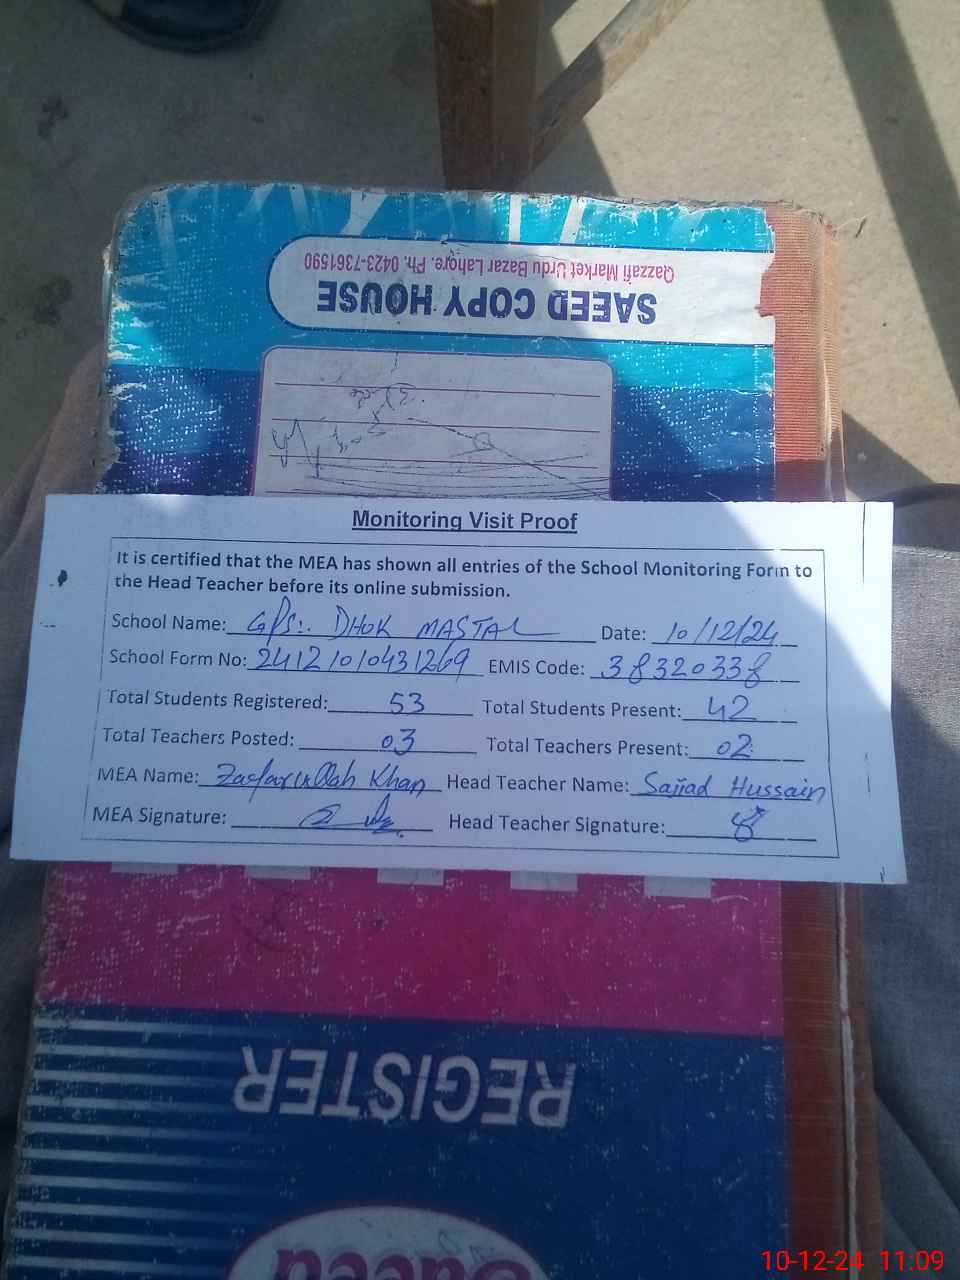 Qazzafi Market Urdu Bazar Lahore. Ph. 0423-7361590
SAEED COPY HOUSE
Monitoring Visit Proof
It is certified that the MEA has shown all entries of the School Monitoring Form to
the Head Teacher before its online submission.
School Name: GPS:. DHOK MASTAL Date: 10/12/24
School Form No: 24121010431269 EMIS Code: 38320338
Total Students Registered: 53 Total Students Present: 42
Total Teachers Posted: 03 Total Teachers Present: 02
MEA Name: Zaafarullah Khan Head Teacher Name: Sajjad Hussain
MEA Signature: Head Teacher Signature:
REGISTER
Saeed
10-12-24 11:09